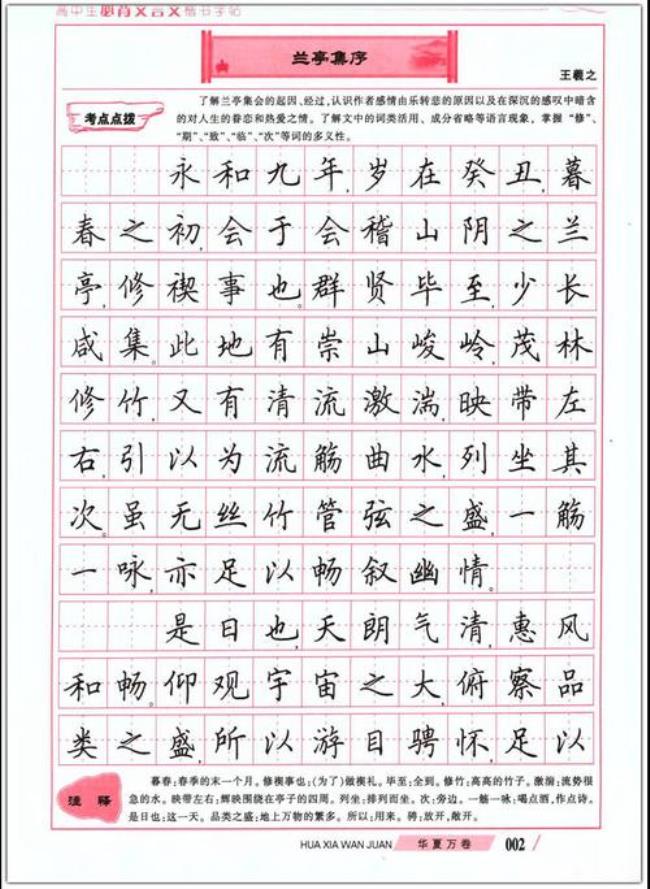 高中生必背文言文楷书字帖
兰亭集序
王羲之
考点点拨
了解兰亭集会的起因、经过,认识作者感情由乐转悲的原因以及在深沉的感叹中暗含
的对人生的眷恋和热爱之情。了解文中的词类活用、成分省略等语言现象,掌握“修”、
“期”、“致”、“临”、“次”等词的多义性。
永和九年,岁在癸丑,暮
春之初,会于会稽山阴之兰
亭,修禊事也。群贤毕至,少长
咸集。此地有崇山峻岭,茂林
修竹,又有清流激湍,映带左
右,引以为流觞曲水,列坐其
次。虽无丝竹管弦之盛,一觞
一咏,亦足以畅叙幽情。
是日也,天朗气清,惠风
和畅。仰观宇宙之大,俯察品
类之盛,所以游目骋怀,足以
注释
暮春:春季的末一个月。修禊事也:(为了)做禊礼。毕至:全到。修竹:高高的竹子。激湍:流势很
急的水。映带左右:辉映围绕在亭子的四周。列坐:排列而坐。次:旁边。一觞一咏:喝点酒,作点诗。
是日也:这一天。品类之盛:地上万物的繁多。所以:用来。骋:放开,敞开。
HUA XIA WAN JUAN 华夏万卷 002